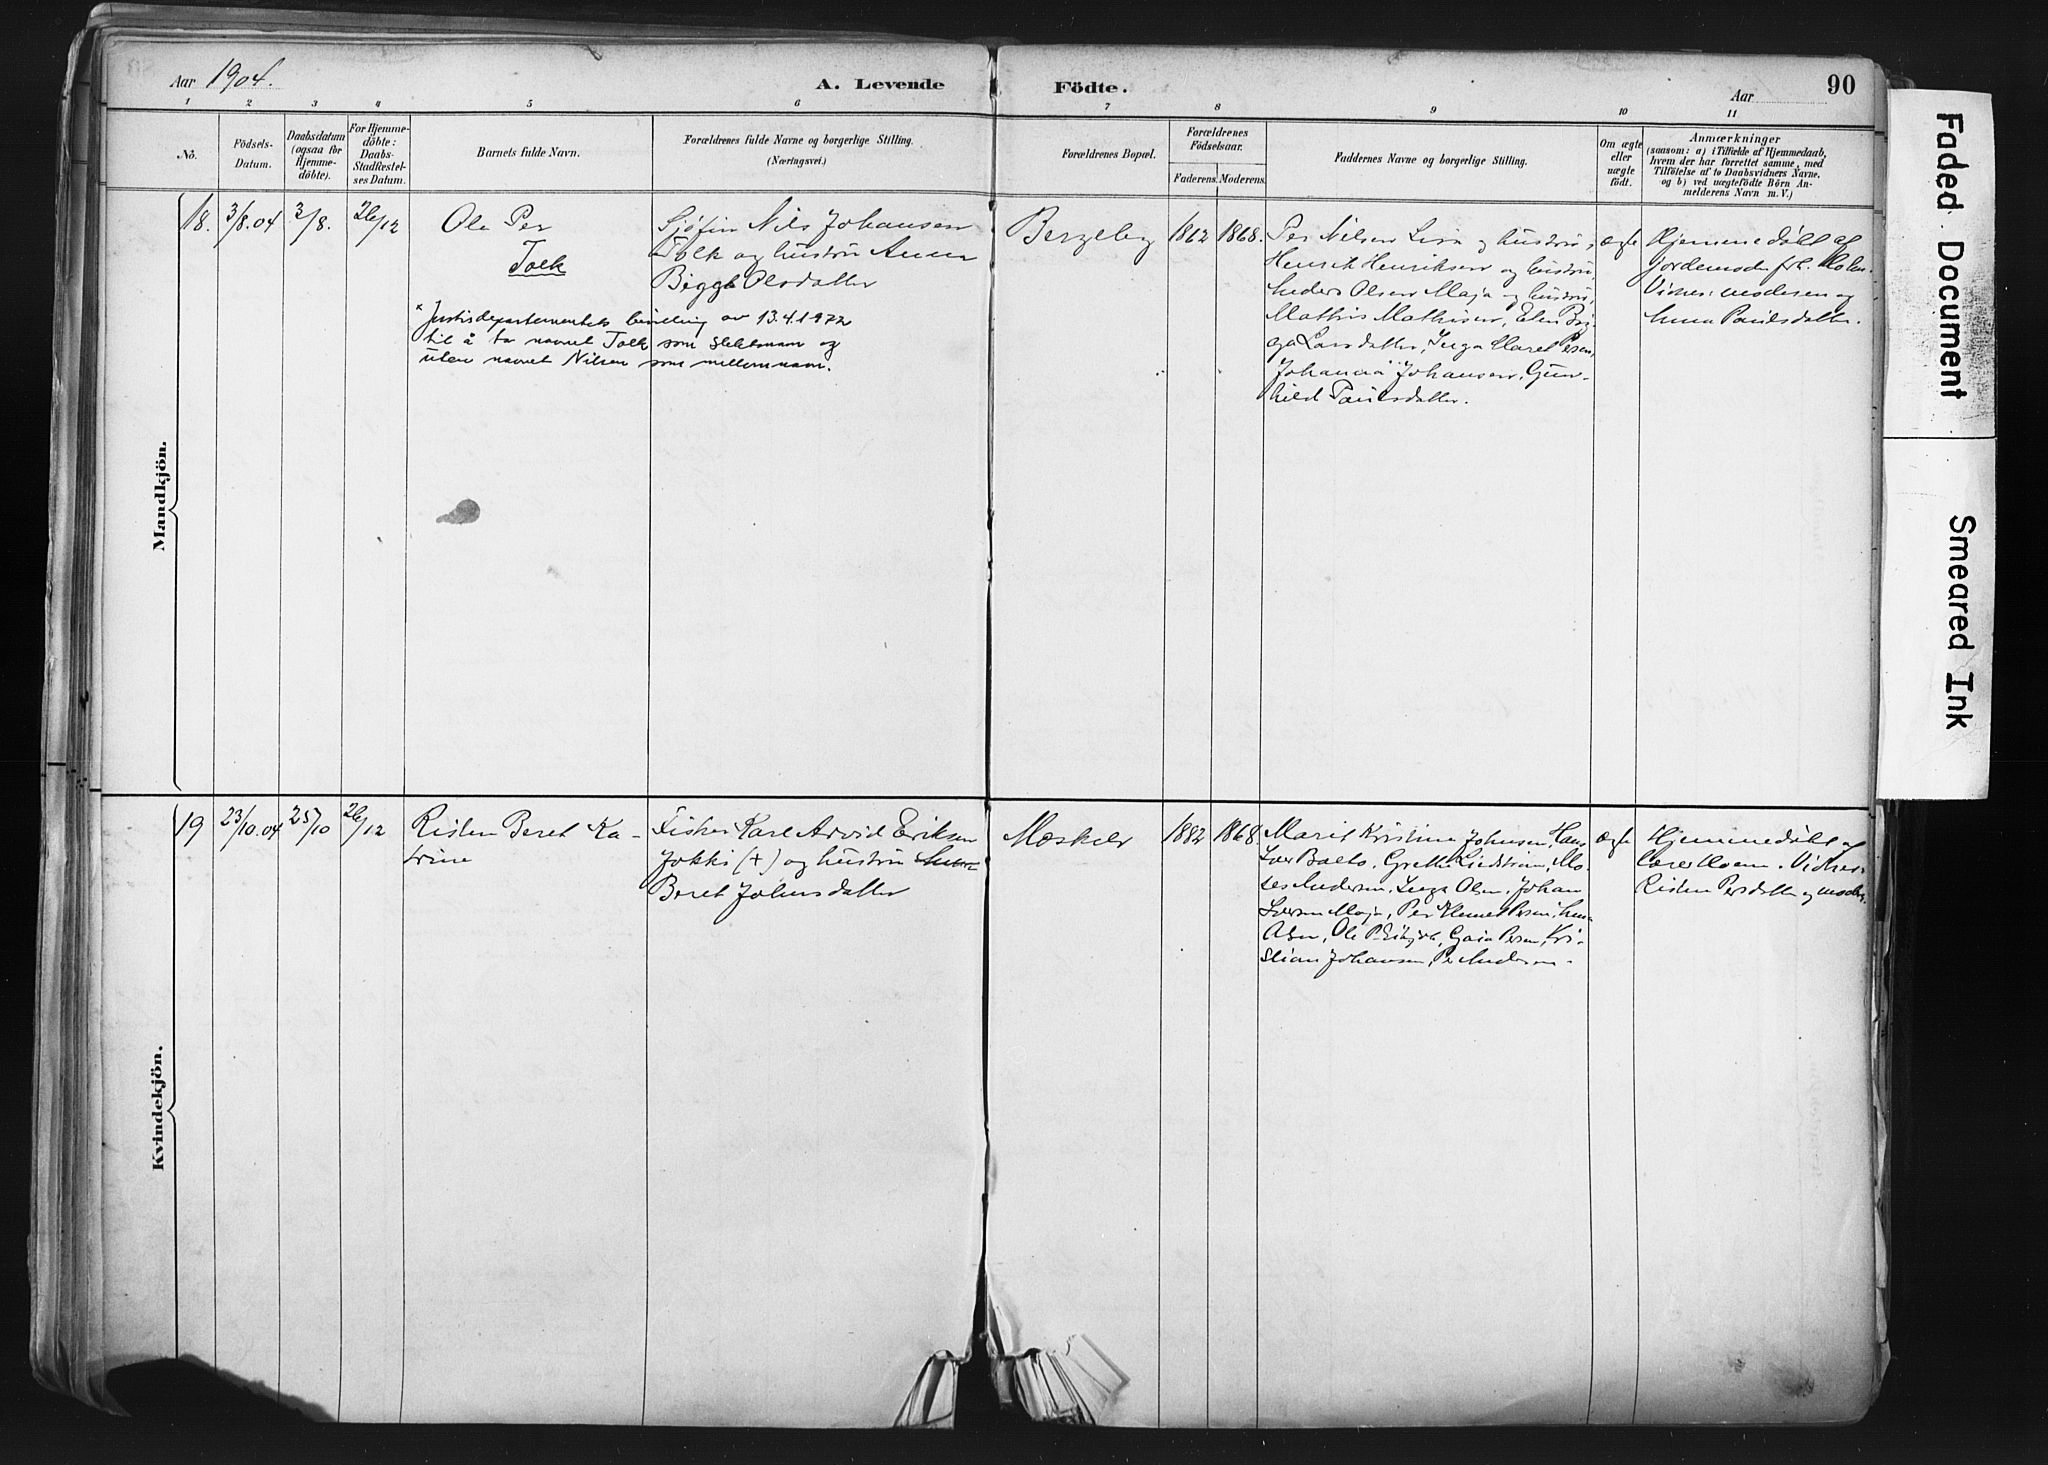 Aar 1904.
A. Levende
Födte.
Aar
90
1 2 3 4 5 6 7 8 9 10 11
No.
Födsels-
Datum.
Daabsdatum
(ogsaa for
Hjemme-
döbte).
For Hjemme-
döbte:
Daabs-
Stadfæstel-
ses Datum.
Barnets fulde Navn.
Forældrenes fulde Navne og borgerlige Stilling.
(Næringsvei.)
Forældrenes Bopæl.
Forældrenes
Födselsaar.
Faderens. Moderens.
Faddernes Navne og borgerlige Stilling.
Om ægte
eller
uægte
födt.
Anmærkninger
(saasom: a) i Tilfælde af Hjemmedaab,
hvem der har forrettet samme, med
Tilföielse af to Daabsvidners Navne.
og b) ved uægtefödte Börn An-
melderens Navn m. V.)
Mandkjön.
18.
3/8.04
3/8.
26/12
Ole Per
Tolk
* Justisdepartementets bevilling av 13.4.1972
til å ta navnet Tolk som slektsnavn og
uten navnet Nilsen som mellomnavn.
Sjøfin Nils Johansen
Tolk og hustru Anna
Bigga Olsdatter
Bergeby
1862
1868.
Per Nilsen og hustru,
Henrik Henriksen og hustru,
Anders Olsen Maja og hustru,
Mathis Mathisen, Elen Big-
ga Larsdatter, Inga Maret Persen,
Johanna Johansen, Gun-
hild Paulsdatter.
ægte
Hjemmedøbt af
jordemoder frk. Holm.
Vidner: moderen og
Anna Paulsdatter.
Kvindekjön.
19
23/10.04
25/10
26/12
Risten Beret Ka-
trine
Fisker Karl Arvid Eriksen
Jokki (+) og hustru
Beret Johnsdatter
Mæskelv
1882
1868.
Marit Kristine Johnsen, Hans
Iver Balto, Grethe Lindstrøm, Mo-
ses Andersen, Inga Olsen, Johan
Iversen Maja, Per Klemet Persen,
Olsen, Ole P. Gaia Persen, Kri-
stian Johansen, Per Andersen.
ægte
Hjemmedøbt af
lærer Vidner:
Risten Persdatter og moder.
Faded Document
Smeared Ink